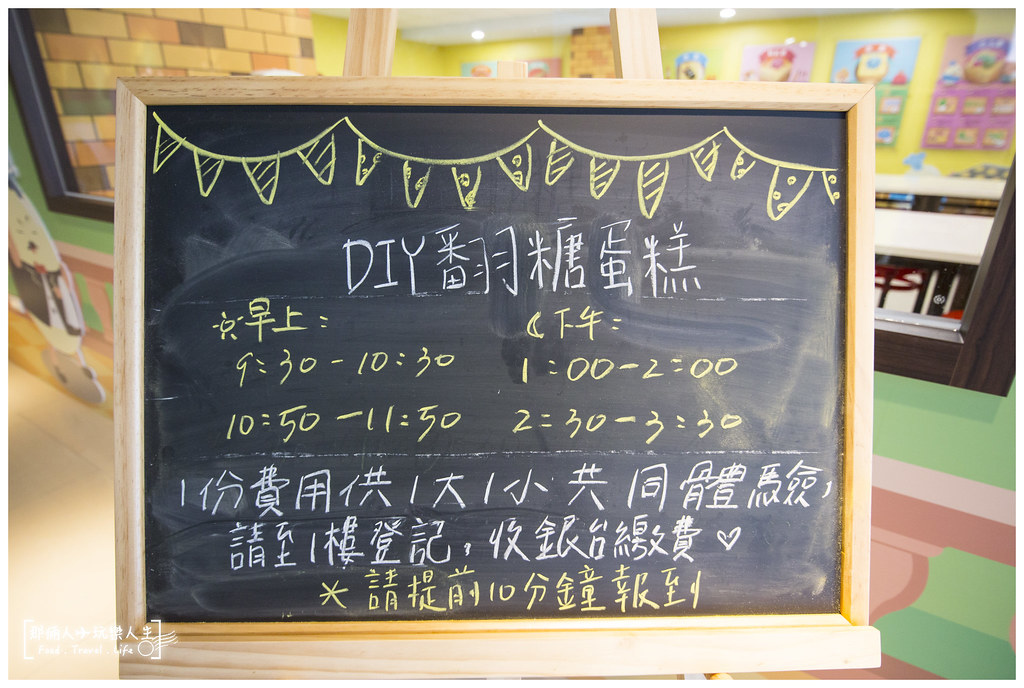 DIY翻羽糖蛋糕
早上：
下午：
9:30-10:30
1:00-2:00
10:50-11:50
2:30-3:30
1份費用供1大1小共同體驗，
請至1樓登記，收銀台繳費♡
＊請提前10分鐘報到
Food . Travel . Life